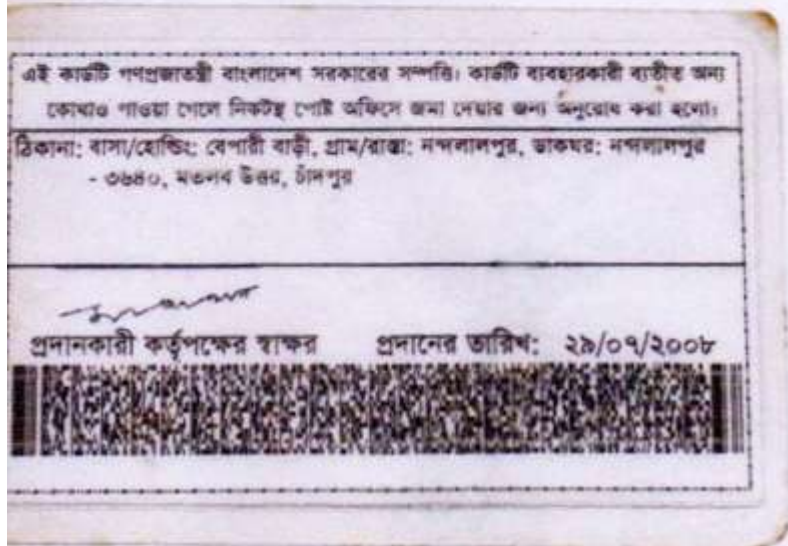 এই কার্ডটি গণপ্রজাতন্ত্রী বাংলাদেশ সরকারের সম্পত্তি। কার্ডটি ব্যবহারকারী ব্যতীত অন্য
কোথাও পাওয়া গেলে নিকটস্থ পোষ্ট অফিসে জমা দেয়ার জন্য অনুরোধ করা হলো।
ঠিকানা: বাসা/হোল্ডিং: বেপারী বাড়ী, গ্রাম/রাস্তা: নন্দলালপুর, ডাকঘর: নন্দলালপুর
- ৩৬৪০, মতলব উত্তর, চাঁদপুর
প্রদানকারী কর্তৃপক্ষের স্বাক্ষর প্রদানের তারিখ: ২৯/০৭/২০০৮